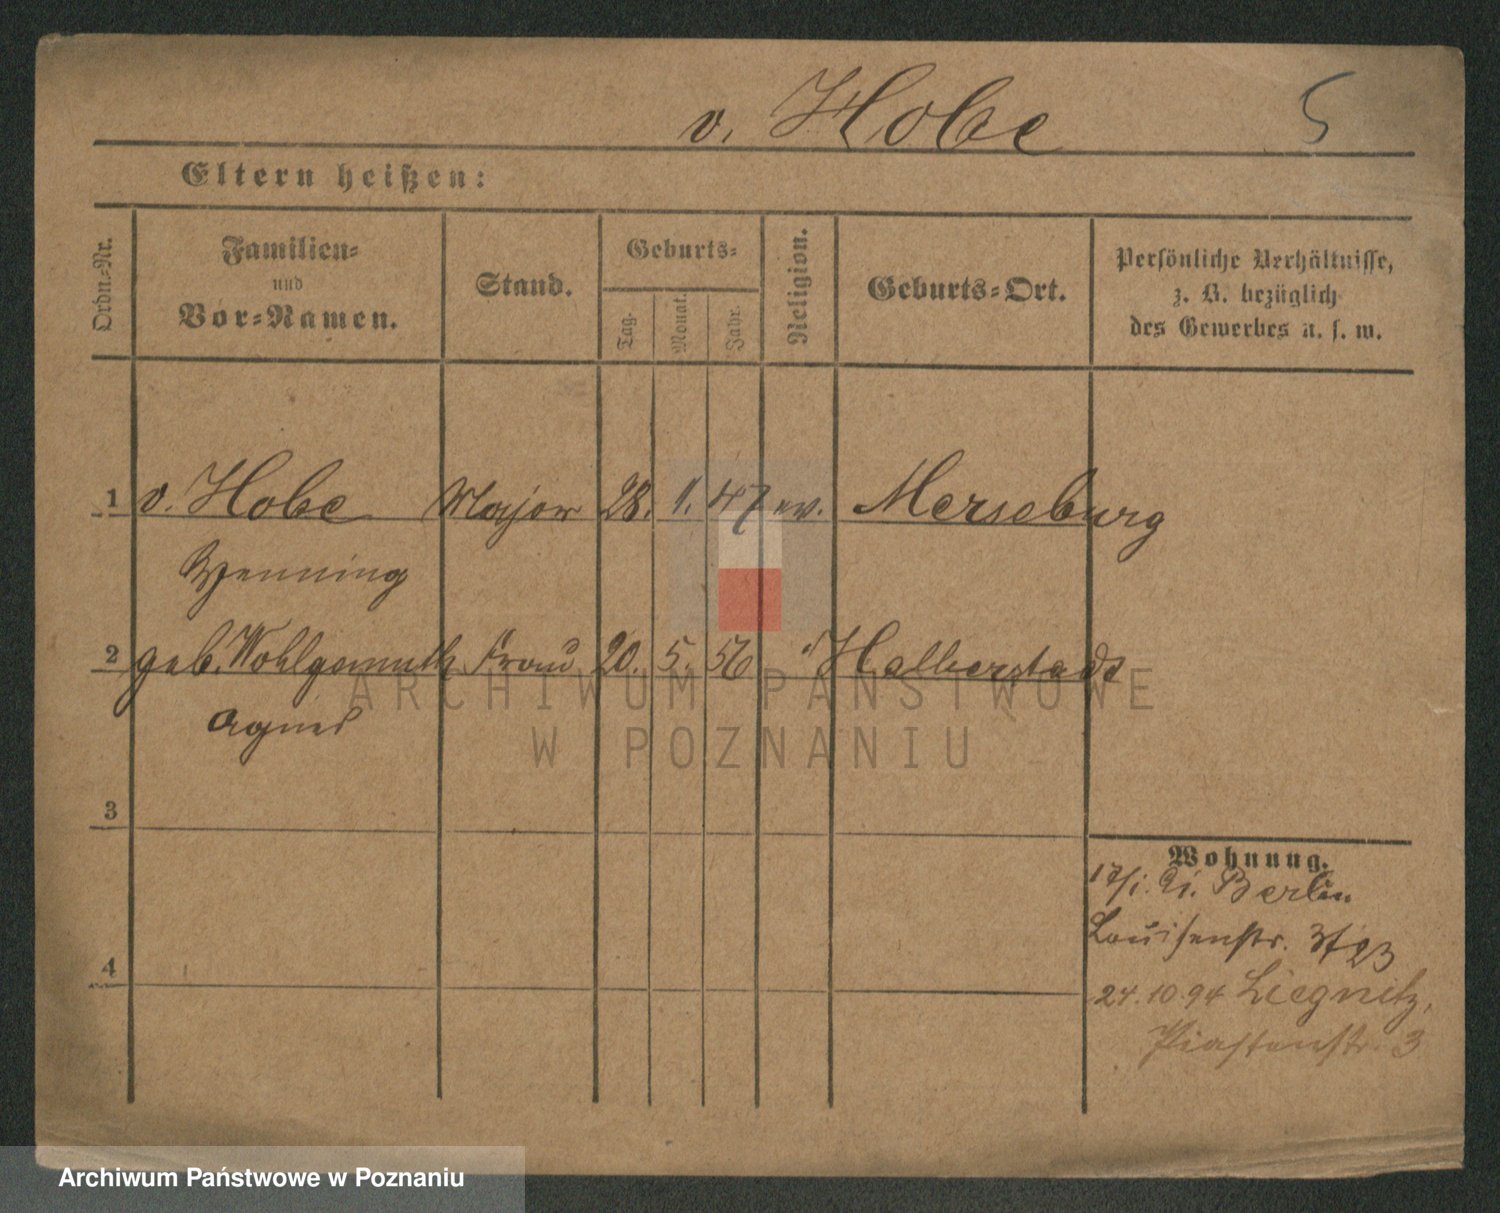 v. Hobe 5
Eltern heißen:
Ordn.-Nr.
Familien-
und
Vor-Namen.
Stand.
Geburts-
Tag.
Monat.
Jahr.
Religion.
Geburts-Ort.
Persönliche Verhältnisse,
z. B. bezüglich
des Gewerbes u. s. w.
1 v. Hobe Major 28. 1. 47 ev. Merseburg
Henning
2 geb. Wohlgemuth Frau 20. 5. 56 " Halberstadt
Agnes
3
4
Wohnung.
17/1. 91. Berlin
Louisenstr. 23
24.10.94 Liegnitz,
Piastenstr. 3
ARCHIWUM PAŃSTWOWE
W POZNANIU
Archiwum Państwowe w Poznaniu